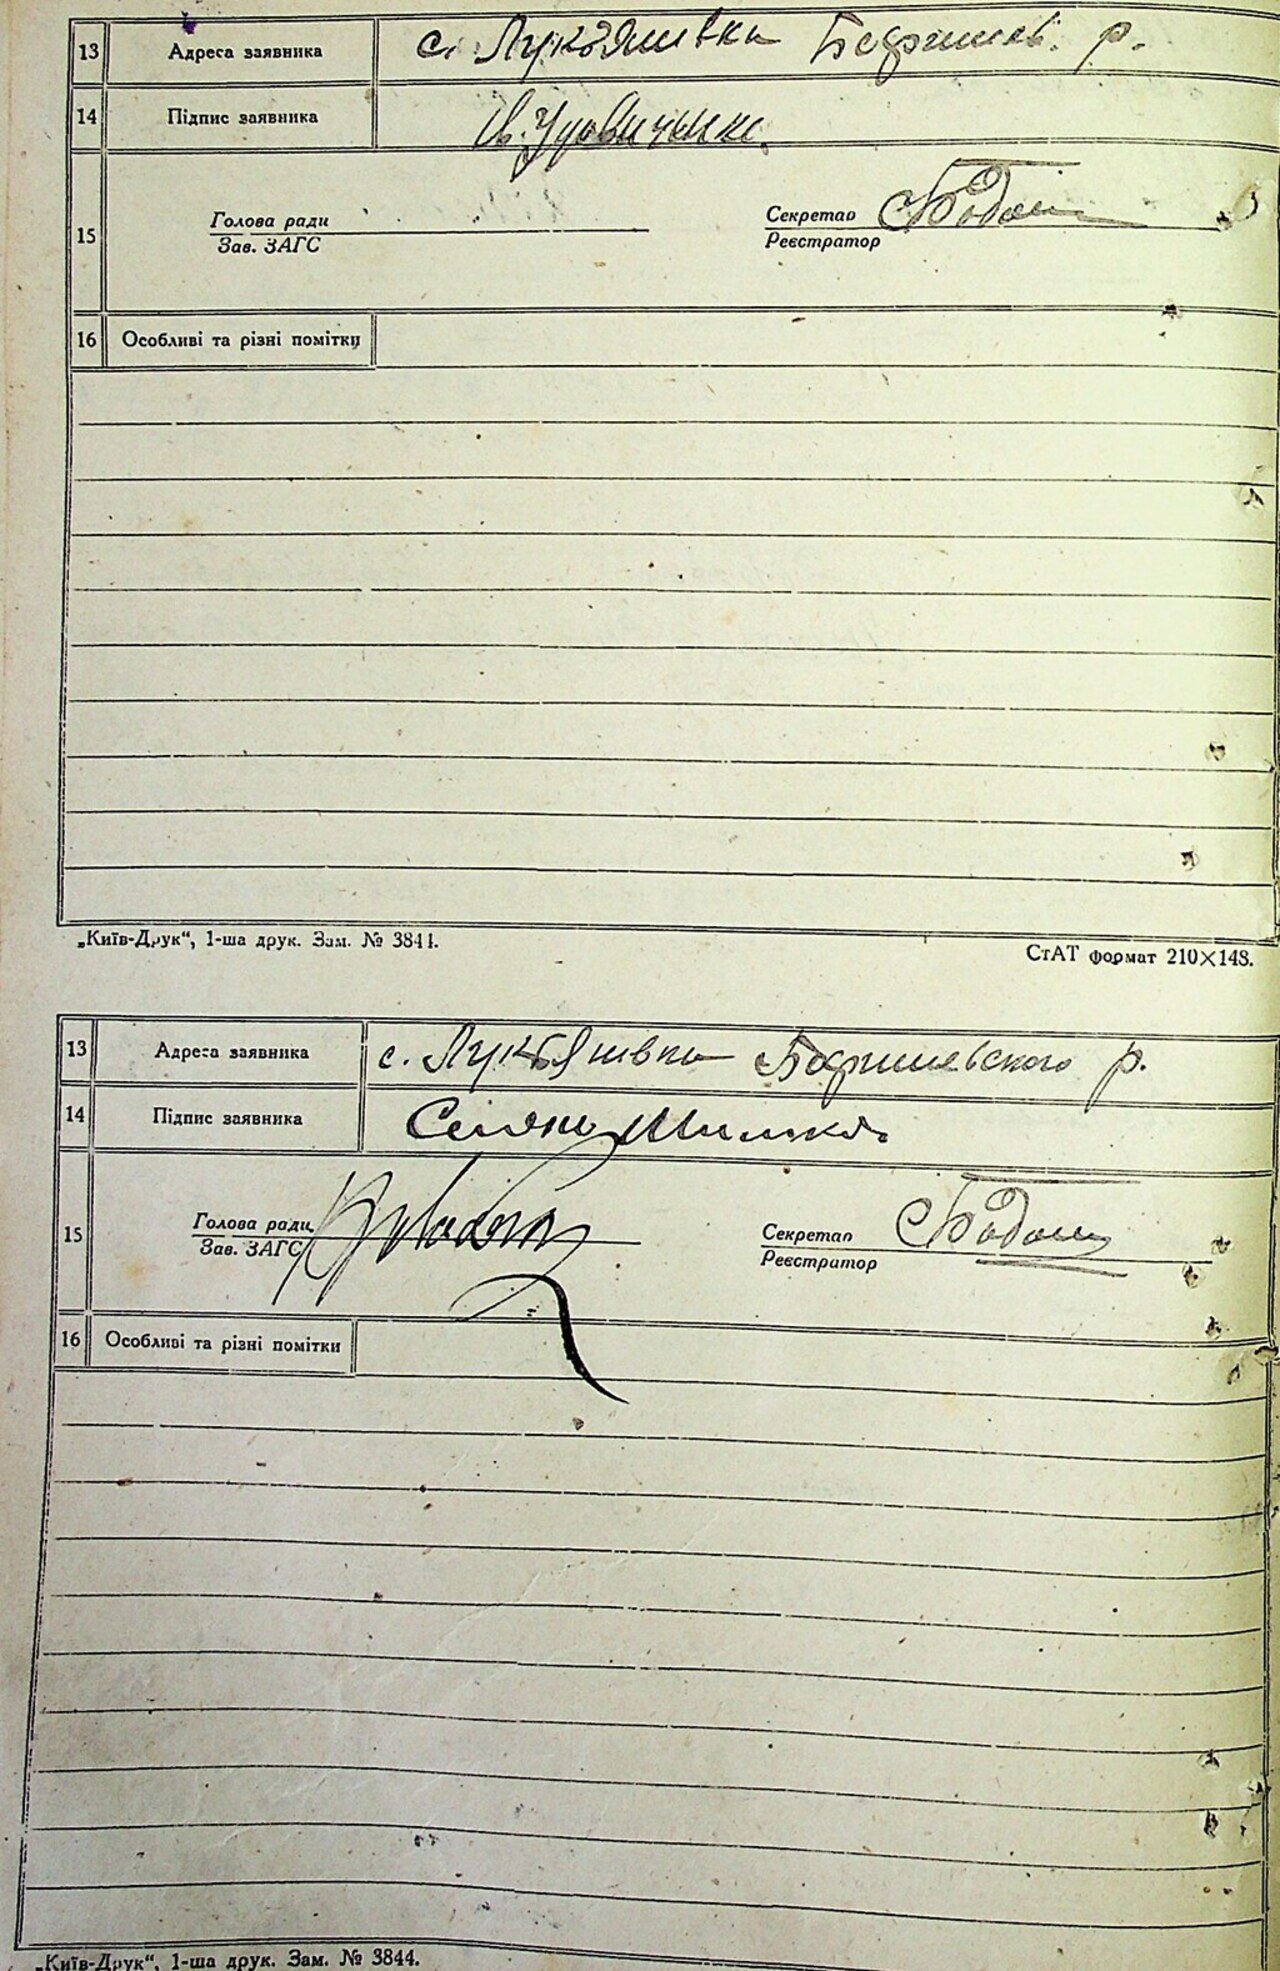 13 Адреса заявника с. Лукъянивка Баришев. р.
14 Підпис заявника
15 Голова ради Секретар
Зав. ЗАГС Реєстратор
16 Особливі та різні помітки
„Київ-Друк“, 1-ша друк. Зам. № 3844. СтАТ формат 210×148.
13 Адреса заявника с. Лукъянивка Баришевского р.
14 Підпис заявника
15 Голова ради Секретар
Зав. ЗАГС Реєстратор
16 Особливі та різні помітки
„Київ-Друк“, 1-ша друк. Зам. № 3844.